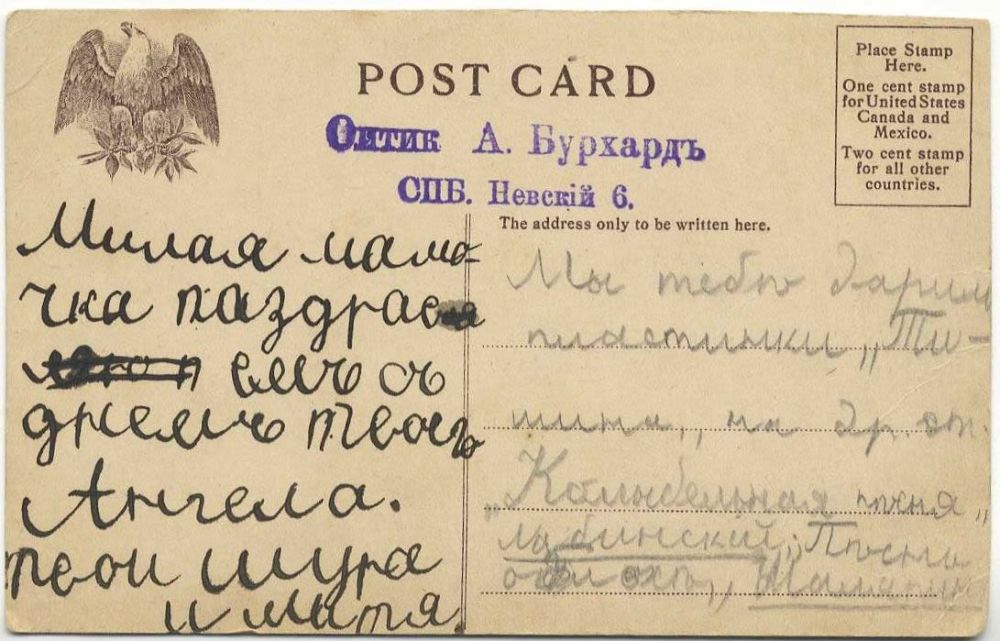 POST CARD
Place Stamp
Here.
One cent stamp
for United States
Canada and
Mexico.
Two cent stamp
for all other
countries.
Оптик А. Бурхардъ
СПБ. Невскій 6.
The address only to be written here.
Милая мамо-
чка паздрав
емъ съ
днемъ твоег
Ангела.
твои Шура
и Митя.
Мы тебѣ дарим
пластинки „Ти-
шина„ на др. ст.
„Колыбельная пѣсня„
Лабинский; Пѣсня
о блохѣ„ Шаляпин